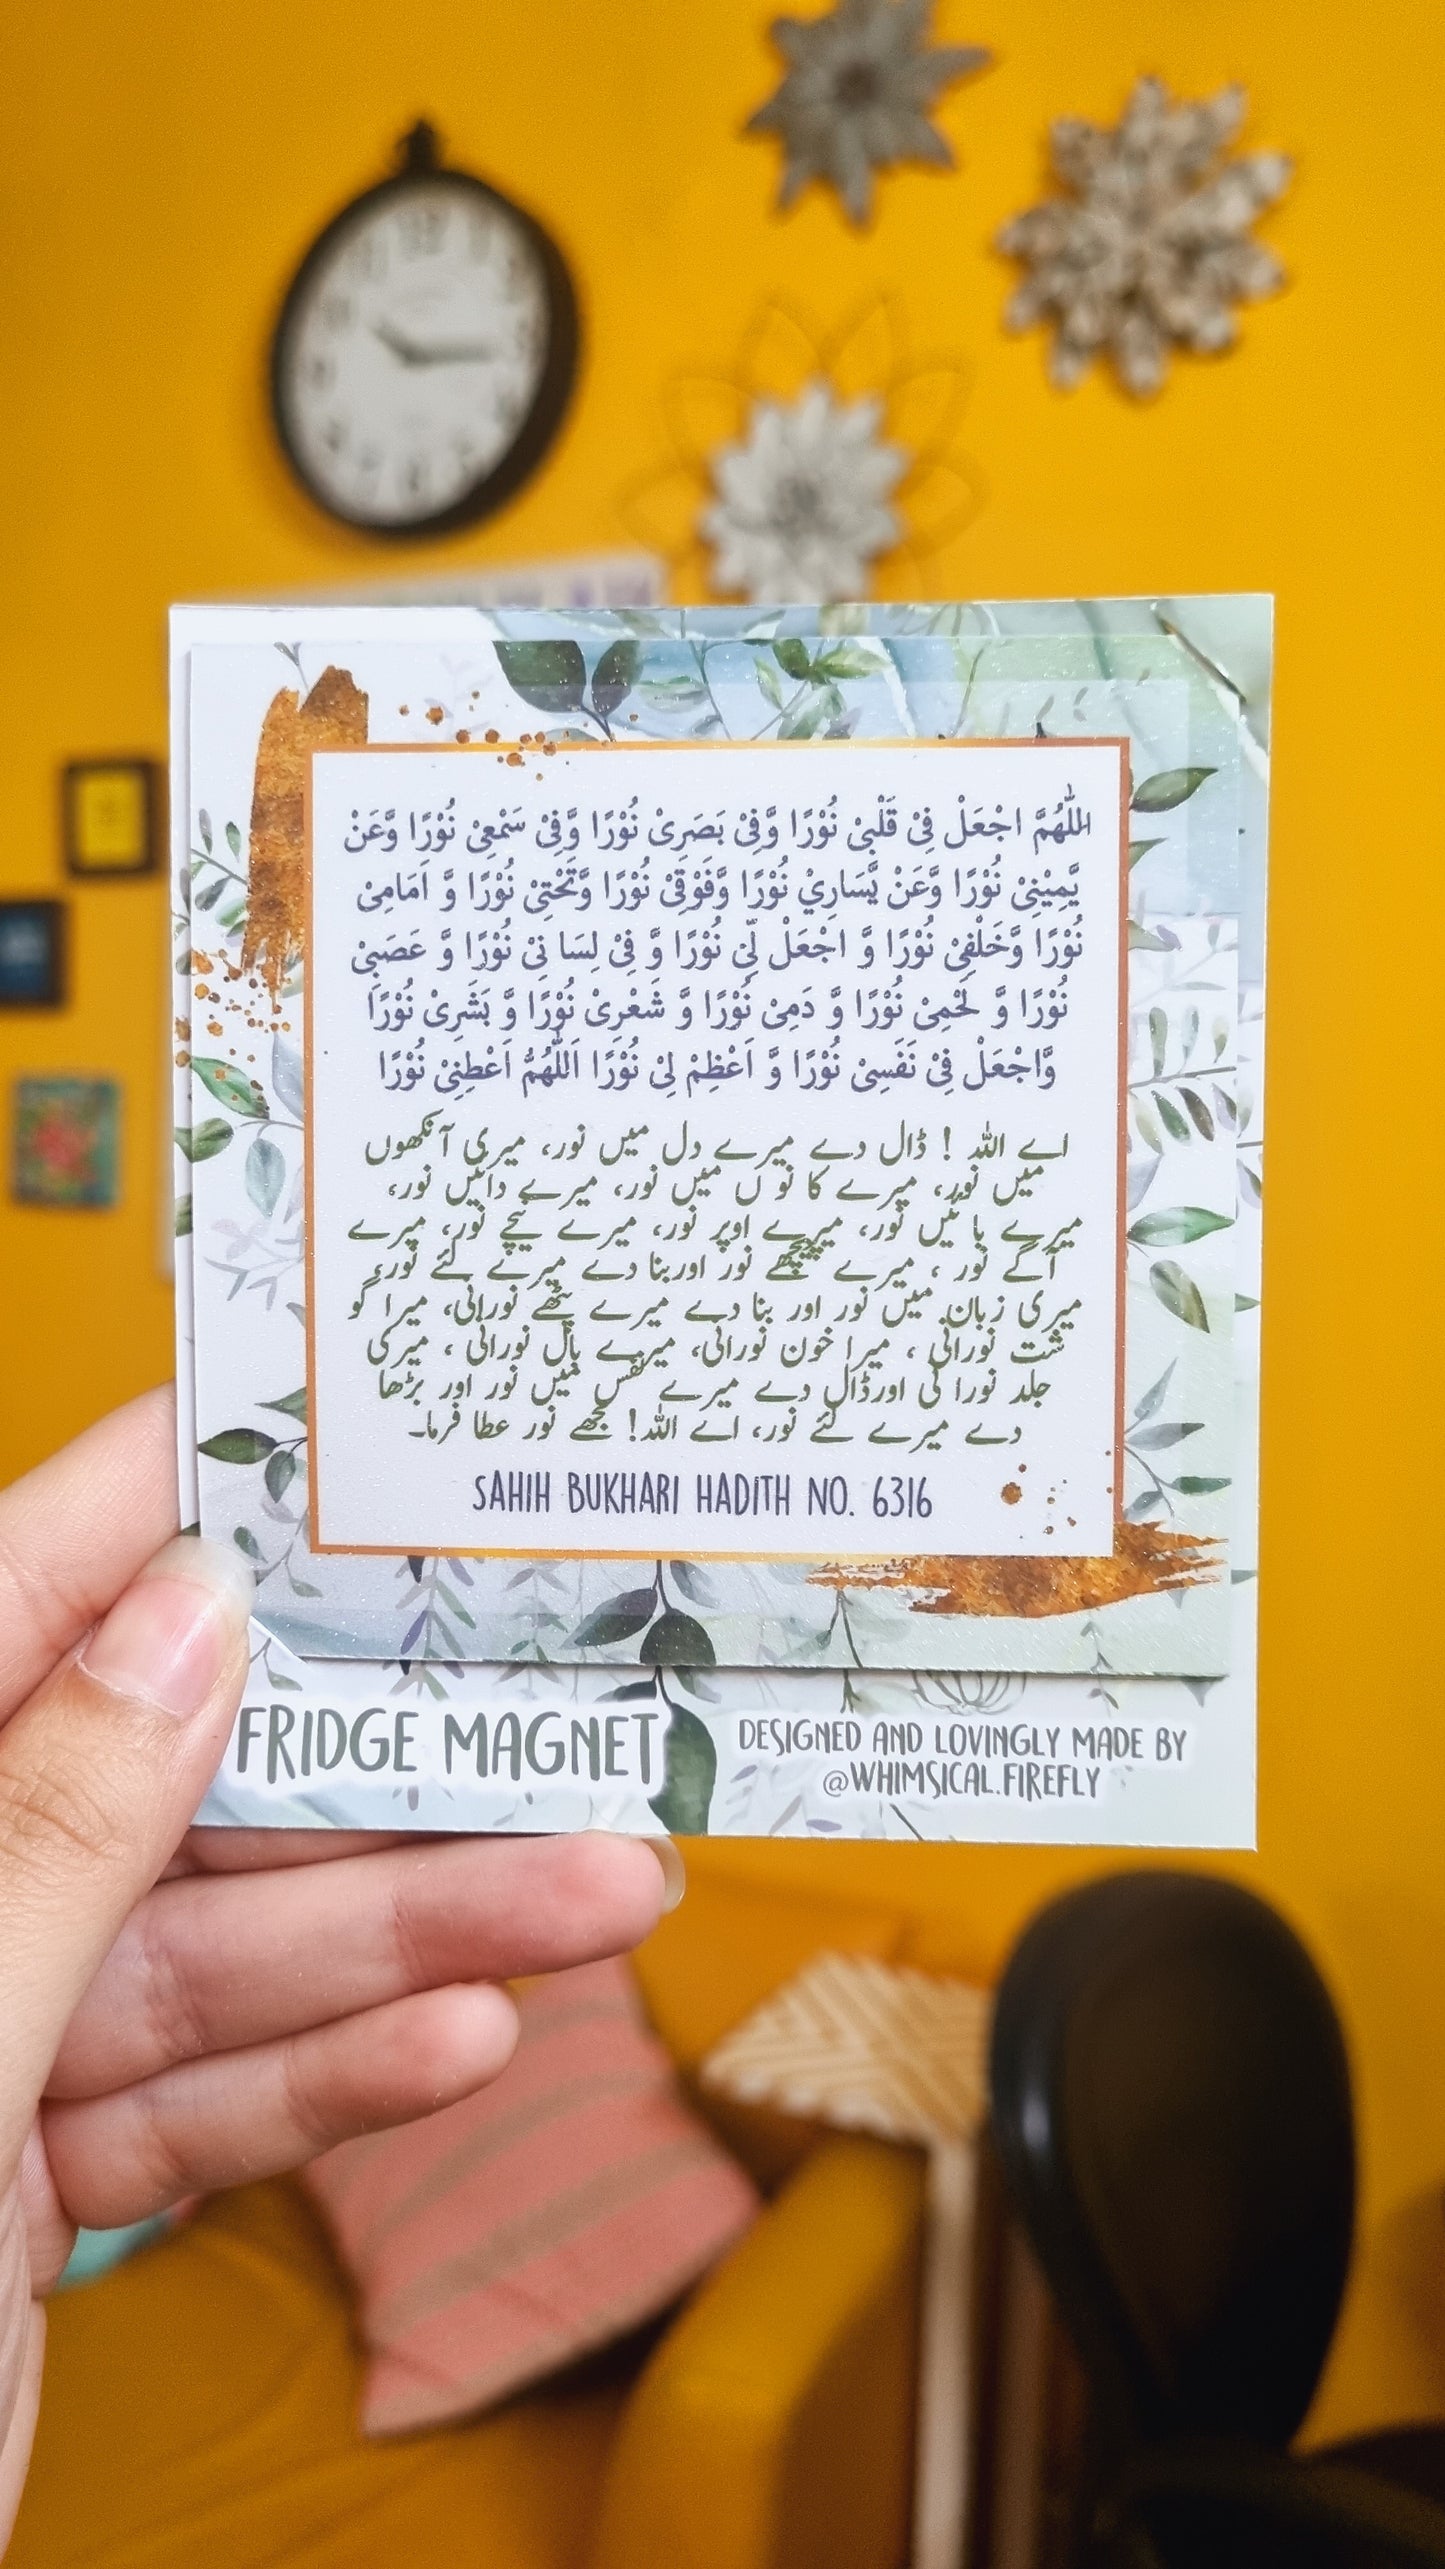 اللّٰهُمَّ اجْعَلْ فِیْ قَلْبِیْ نُوْرًا وَّفِیْ بَصَرِیْ نُوْرًا وَّفِیْ سَمْعِیْ نُوْرًا وَّعَنْ
یَّمِیْنِیْ نُوْرًا وَّعَنْ یَّسَارِيْ نُوْرًا وَّفَوْقِیْ نُوْرًا وَّتَحْتِیْ نُوْرًا وَّ اَمَامِیْ
نُوْرًا وَّخَلْفِیْ نُوْرًا وَّ اجْعَلْ لِّیْ نُوْرًا وَّ فِیْ لِسَا نِیْ نُوْرًا وَّ عَصَبِیْ
نُوْرًا وَّ لَحْمِیْ نُوْرًا وَّ دَمِیْ نُوْرًا وَّ شَعْرِیْ نُوْرًا وَّ بَشَرِیْ نُوْرًا
وَّاجْعَلْ فِیْ نَفَسِیْ نُوْرًا وَّ اَعْظِمْ لِیْ نُوْرًا اَللّٰهُمُّ اَعْطِنِیْ نُوْرًا
اے اللہ ! ڈال دے میرے دل میں نور، میری آنکھوں
میں نور، میرے کا نو ں میں نور، میرے دائیں نور،
میرے با ئیں نور، میرے اوپر نور، میرے نیچے نور، میرے
آگے نور ، میرے پیچھے نور اور بنا دے میرے لئے نور،
میری زبان میں نور اور بنا دے میرے پٹھے نورانی، میرا گو
شت نورانی ، میرا خون نورانی، میرے بال نورانی ، میری
جلد نورا نی اور ڈال دے میرے نفس میں نور اور بڑھا
دے میرے لئے نور، اے اللہ! مجھے نور عطا فرما۔
SAHIH BUKHARI HADITH NO. 6316
FRIDGE MAGNET
DESIGNED AND LOVINGLY MADE BY
@WHIMSICAL.FIREFLY